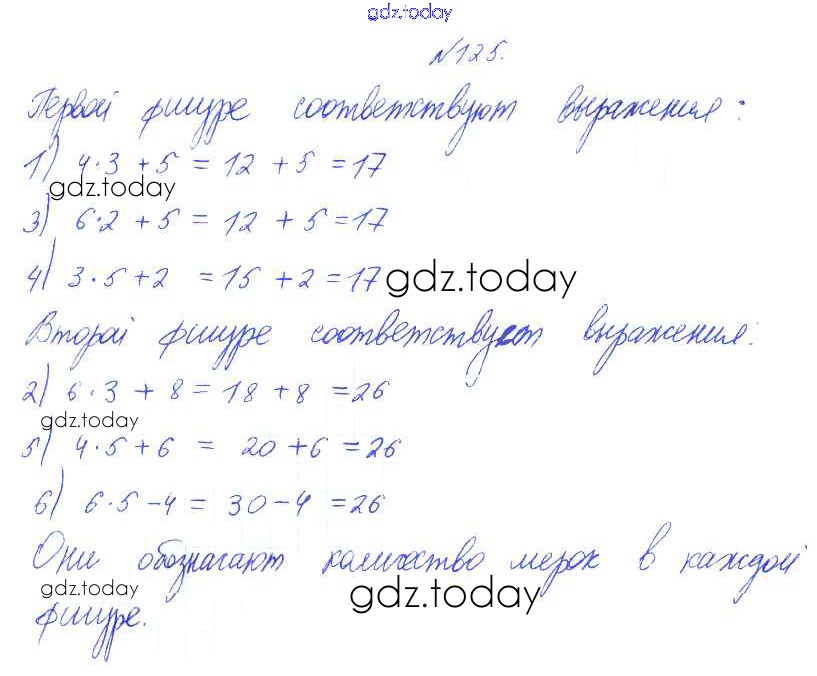 gdz.today
№125.
Первой фигуре соответствуют выражения:
1) 4·3 + 5 = 12 + 5 = 17
gdz.today
3) 6·2 + 5 = 12 + 5 = 17
4) 3·5 + 2 = 15 + 2 = 17 gdz.today
Второй фигуре соответствуют выражения:
2) 6·3 + 8 = 18 + 8 = 26
gdz.today
5) 4·5 + 6 = 20 + 6 = 26
6) 6·5 - 4 = 30 - 4 = 26
Они обозначают количество мерок в каждой
gdz.today gdz.today
фигуре.